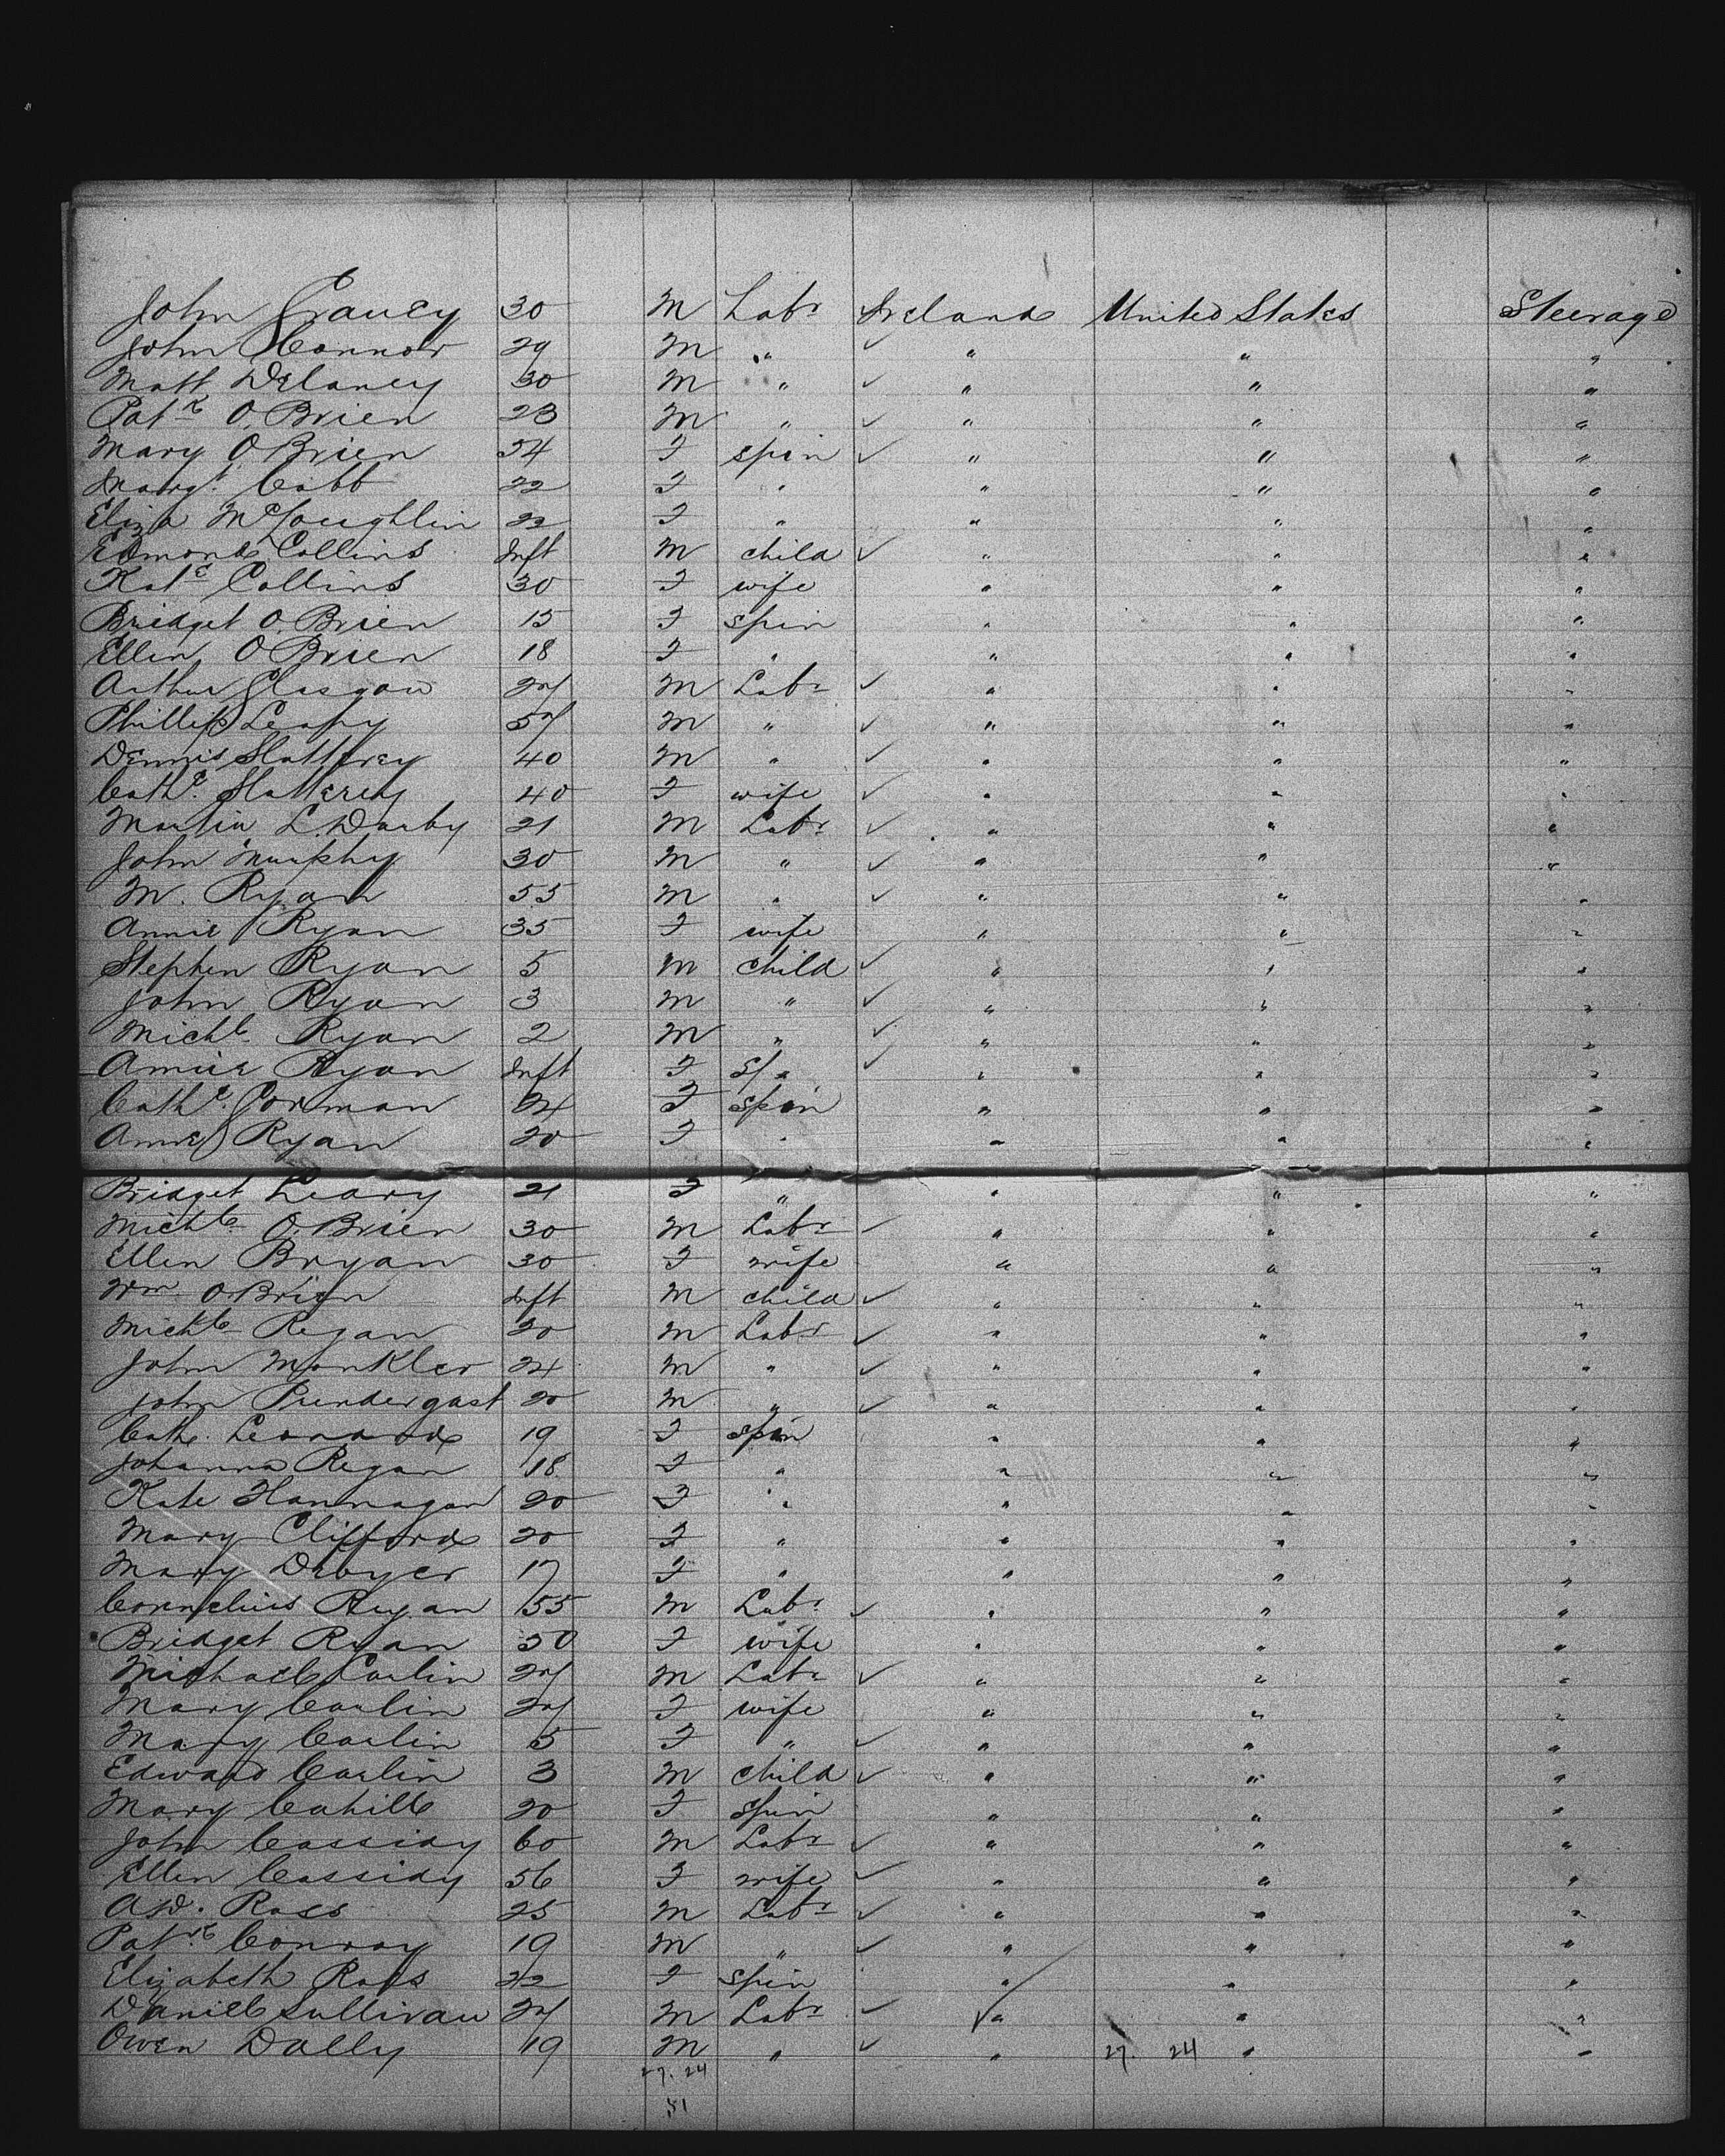 John Graney 30 M Labr Ireland United States Steerage
John Connor 29 M " " " "
Matt Delaney 30 M " " " "
Patk O.Brien 23 M " " " "
Mary O Brien 24 F spin " " "
Margt Cabb 22 F " " " "
Eliza McLoughlin 22 F " " " "
Edmond Collins Inft M child " " "
Kate Collins 30 F wife " " "
Bridget O.Brien 15 F spin " " "
Ellen O Brien 18 F " " " "
Arthur Glasgow M Labr " " "
Phillip Leahy M " " " "
Dennis Slattery 40 M " " " "
Cathe Slattery 40 F wife " " "
Martin L. Darby 21 M Labr " " "
John Murphy 30 M " " " "
M. Ryan 55 M " " " "
Annie Ryan 35 F wife " " "
Stephen Ryan 5 M child " " "
John Ryan 3 M " " " "
Michl Ryan 2 M " " " "
Annie Ryan Inft F " " "
Cathe Gorman 24 F Spin " " "
Annie Ryan 20 F " " " "
Bridget Leary 21 F " " " "
Michl O.Brien 30 M Labr " " "
Ellen Bryan 30 F wife " " "
Wm O Brien Inft M child " " "
Michl Regan 20 M Labr " " "
John Monkler 24 M " " " "
John Prendergast 20 M " " " "
Cath. Leonard 19 F spin " " "
Johanna Regan 18 F " " " "
Kate Hannagan 20 F " " " "
Mary Clifford 20 F " " " "
Mary Dwyer 17 F " " " "
Cornelius Ryan 55 M Labr " " "
Bridget Ryan 50 F wife " " "
Michael Carlin M Labr " " "
Mary Carlin F wife " " "
Mary Carlin 5 F " " " "
Edward Carlin 3 M child " " "
Mary Cahill 20 F Spin " " "
John Cassidy 60 M Labr " " "
Ellen Cassidy 56 F wife " " "
Ross 25 M Labr " " "
Patk Conroy 19 M " " " "
Elizabeth Ross 22 F spin " " "
Daniel Sullivan M Labr " " "
Owen Dally 19 M " " 27. 24 " "
27. 24
51